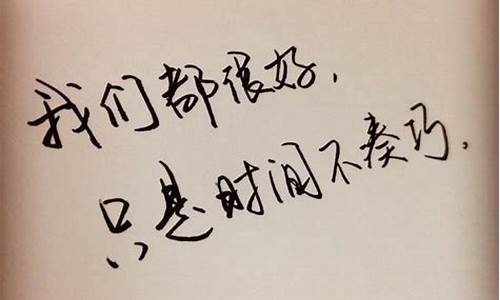 我们都很好,
只是时间不奏巧,